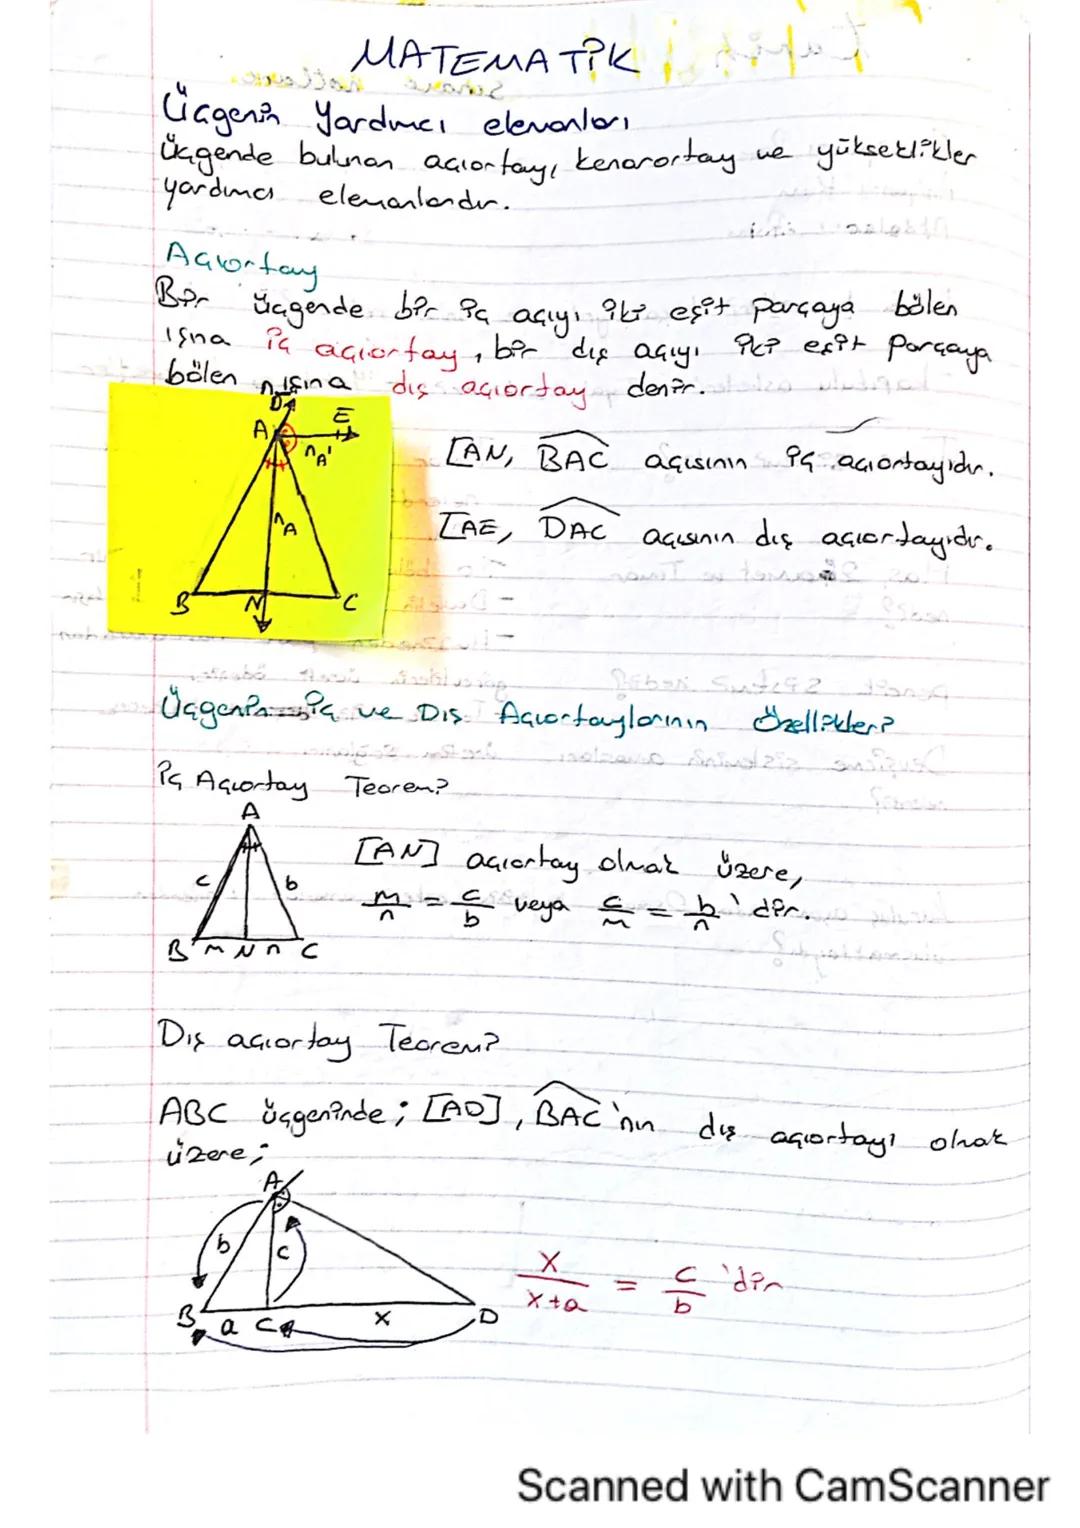 MATEMATİK
Üçgenin Yardımcı elemanları
Üçgende bulunan açıortay, kenarortay ve yükseklikler
yardımcı elemanlardır.
Açıortay
Bir üçgende bir iç açıyı iki eşit parçaya bölen
ışına iç açıortay, bir dış açıyı iki eşit parçaya
bölen ışına dış açıortay denir.
D
A E
nA'
nA
B N C
[AN, BAC açısının iç açıortayıdır.
[AE, DAC açısının dış açıortayıdır.
Üçgenin iç ve Dış Açıortaylarının Özellikleri
İç Açıortay Teoremi
A
c b
B m N n C
[AN] açıortay olmak üzere,
m/n = c/b veya c/m = b/n 'dir.
Dış açıortay Teoremi
ABC üçgeninde; [AD], BAC'nın dış açıortayı olmak
üzere;
A
b c
B a C x D
x/x+a = c/b 'dir
Scanned with CamScanner